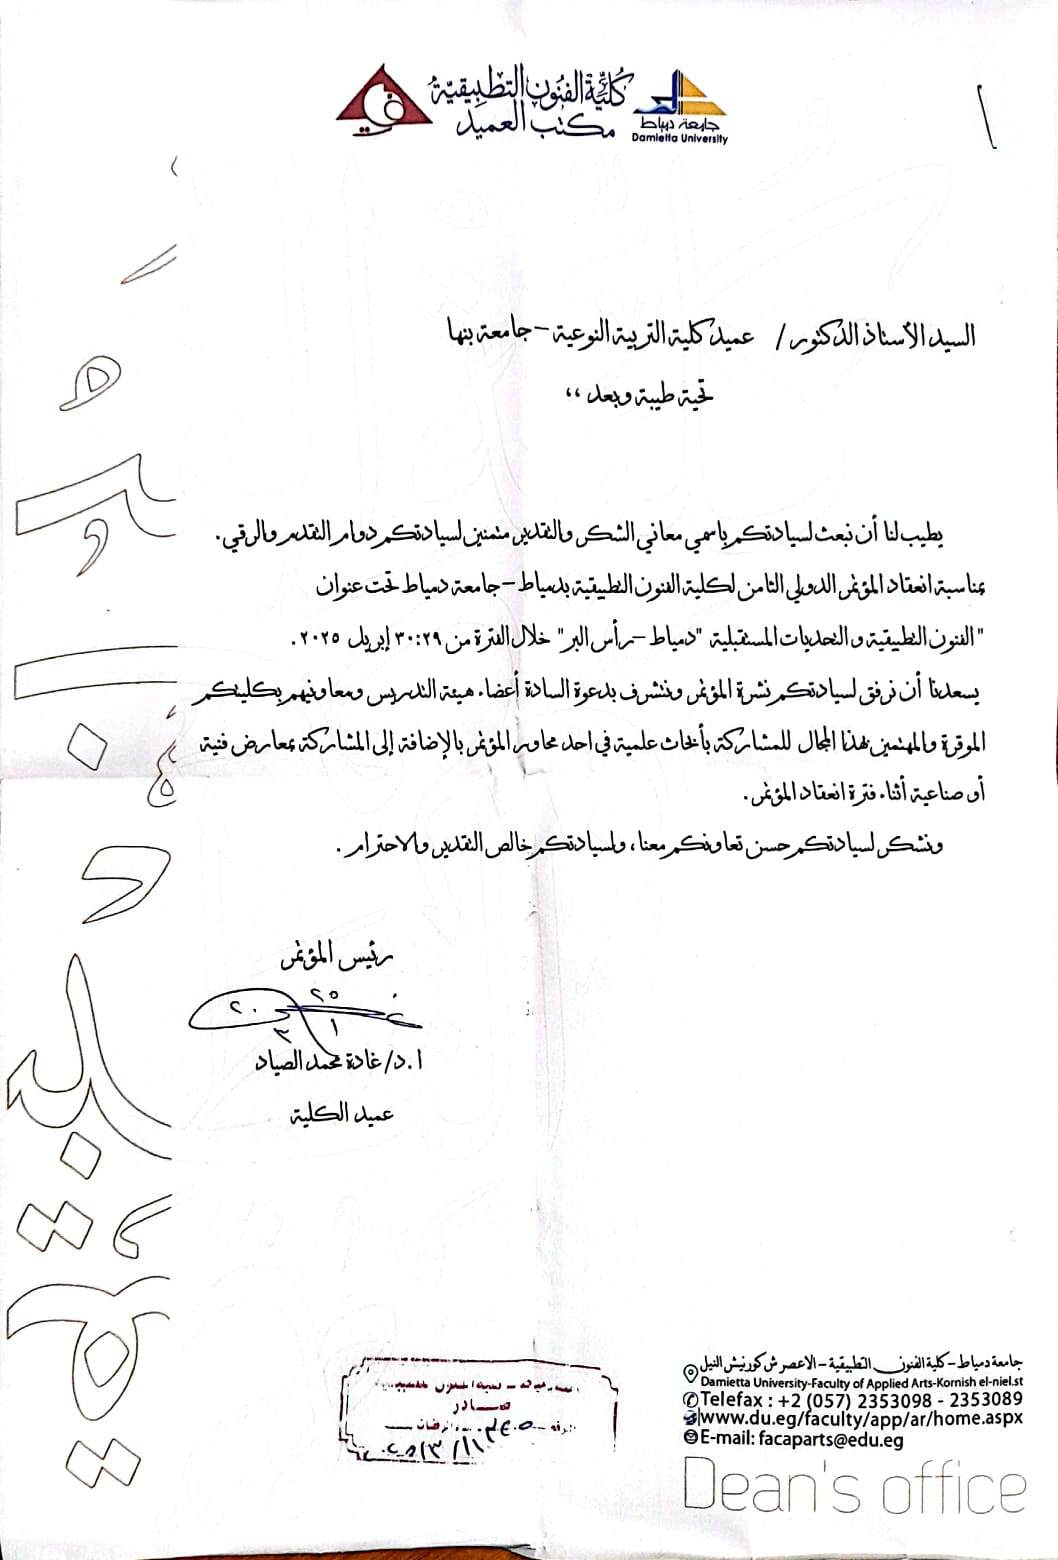 كلية الفنون التطبيقية
مكتب العميد
جامعة دمياط
Damietta University
السيد الأستاذ الدكتور / عميد كلية التربية النوعية – جامعة بنها
تحية طيبة وبعد ،،
يطيب لنا أن نبعث لسيادتكم باسمي معاني الشكر والتقدير متمنين لسيادتكم دوام التقدم والرقي .
بمناسبة انعقاد المؤتمر الدولي الثامن لكلية الفنون التطبيقية بدمياط – جامعة دمياط تحت عنوان
" الفنون التطبيقية و التحديات المستقبلية "دمياط – رأس البر" خلال الفترة من ٣٠:٢٩ إبريل ٢٠٢٥ .
يسعدنا أن نرفق لسيادتكم نشرة المؤتمر ونتشرف بدعوة السادة أعضاء هيئة التدريس ومعاونيهم بكليتكم
الموقرة والمهتمين بهذا المجال للمشاركة بأبحاث علمية في احد محاور المؤتمر بالإضافة إلى المشاركة بمعارض فنية
أو صناعية أثناء فترة انعقاد المؤتمر .
ونشكر لسيادتكم حسن تعاونكم معنا ، ولسيادتكم خالص التقدير والاحترام .
رئيس المؤتمر
ا.د/ غادة محمد الصياد
عميد الكلية
صادر
جامعة دمياط – كلية الفنون التطبيقية – الاعصر ش كورنيش النيل
Damietta University-Faculty of Applied Arts-Kornish el-niel.st
Telefax : +2 (057) 2353098 - 2353089
www.du.eg/faculty/app/ar/home.aspx
E-mail: facaparts@edu.eg
Dean's office